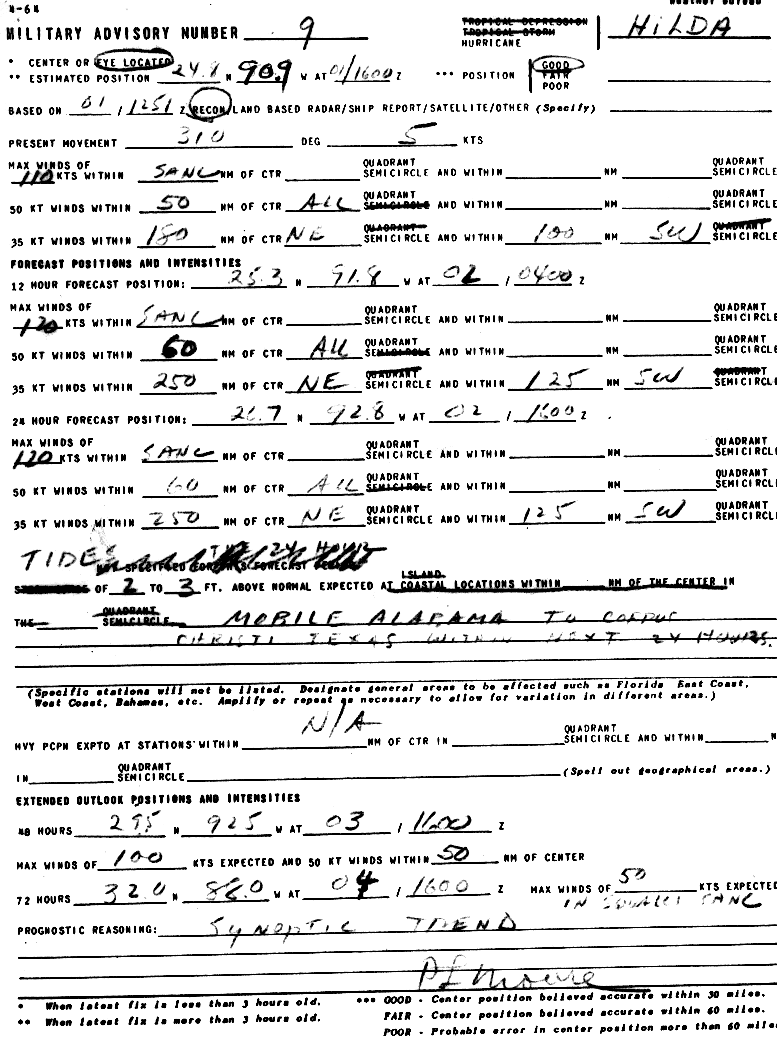 4-64
MILITARY ADVISORY NUMBER 9 TROPICAL DEPRESSION TROPICAL STORM HURRICANE HILDA
* CENTER OR EYE LOCATED
** ESTIMATED POSITION 24.8 N 90.9 W AT 01/1600 Z *** POSITION GOOD FAIR POOR
BASED ON 01 / 1251 Z RECON/LAND BASED RADAR/SHIP REPORT/SATELLITE/OTHER (Specify)
PRESENT MOVEMENT 310 DEG 5 KTS
MAX WINDS OF
110 KTS WITHIN SANC NM OF CTR QUADRANT SEMICIRCLE AND WITHIN NM QUADRANT SEMICIRCLE
50 KT WINDS WITHIN 50 NM OF CTR ALL QUADRANT SEMICIRCLE AND WITHIN NM QUADRANT SEMICIRCLE
35 KT WINDS WITHIN 180 NM OF CTR NE QUADRANT SEMICIRCLE AND WITHIN 100 NM SW QUADRANT SEMICIRCLE
FORECAST POSITIONS AND INTENSITIES
12 HOUR FORECAST POSITION: 25.3 N 91.8 W AT 02 / 0400 Z
MAX WINDS OF
120 KTS WITHIN SANC NM OF CTR QUADRANT SEMICIRCLE AND WITHIN NM QUADRANT SEMICIRCLE
50 KT WINDS WITHIN 60 NM OF CTR ALL QUADRANT SEMICIRCLE AND WITHIN NM QUADRANT SEMICIRCLE
35 KT WINDS WITHIN 250 NM OF CTR NE QUADRANT SEMICIRCLE AND WITHIN 125 NM SW QUADRANT SEMICIRCLE
24 HOUR FORECAST POSITION: 26.7 N 92.8 W AT 02 / 1600 Z
MAX WINDS OF
120 KTS WITHIN SANC NM OF CTR QUADRANT SEMICIRCLE AND WITHIN NM QUADRANT SEMICIRCLE
50 KT WINDS WITHIN 60 NM OF CTR ALL QUADRANT SEMICIRCLE AND WITHIN NM QUADRANT SEMICIRCLE
35 KT WINDS WITHIN 250 NM OF CTR NE QUADRANT SEMICIRCLE AND WITHIN 125 NM SW QUADRANT SEMICIRCLE
TIDES
OF 2 TO 3 FT. ABOVE NORMAL EXPECTED AT ISLAND COASTAL LOCATIONS WITHIN NM OF THE CENTER IN
THE QUADRANT SEMICIRCLE MOBILE ALABAMA TO CORPUS
CHRISTI TEXAS WITHIN NEXT 24 HOURS.
(Specific stations will not be listed. Designate general areas to be affected such as Florida East Coast,
West Coast, Bahamas, etc. Amplify or repeat as necessary to allow for variation in different areas.)
N/A
HVY PCPN EXPTD AT STATIONS WITHIN NM OF CTR IN QUADRANT SEMICIRCLE AND WITHIN N
IN QUADRANT SEMICIRCLE (Spell out geographical areas.)
EXTENDED OUTLOOK POSITIONS AND INTENSITIES
48 HOURS 29.5 N 92.5 W AT 03 / 1600 Z
MAX WINDS OF 100 KTS EXPECTED AND 50 KT WINDS WITHIN 50 NM OF CENTER
72 HOURS 32.0 N 86.0 W AT 04 / 1600 Z MAX WINDS OF 50 KTS EXPECTED
IN SQUALLS SANC
PROGNOSTIC REASONING: SYNOPTIC TREND
PL Moore
* When latest fix is less than 3 hours old. *** GOOD - Center position believed accurate within 30 miles.
** When latest fix is more than 3 hours old. FAIR - Center position believed accurate within 60 miles.
POOR - Probable error in center position more than 60 miles